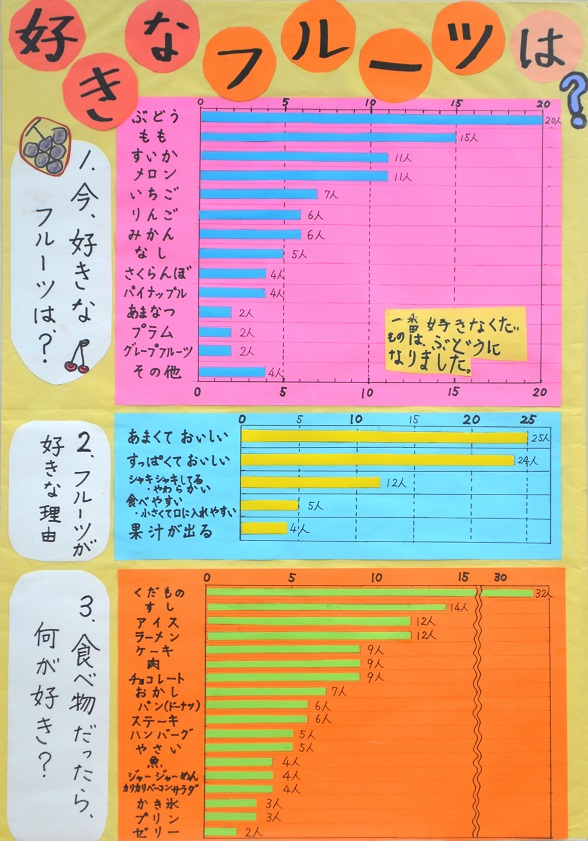 好きなフルーツは?
1.今、好きな
フルーツは、?
0 5 10 15 20
ぶどう 20人
もも 15人
すいか 11人
メロン 11人
いちご 7人
りんご 6人
みかん 6人
なし 5人
さくらんぼ 4人
パイナップル 4人
あまなつ 2人
プラム 2人
グレープフルーツ 2人
その他 4人
0 5 10 15 20
一番好きなくだ
ものは、ぶどうに
なりました。
2.フルーツが
好きな理由
0 5 10 15 20 25
あまくておいしい 25人
すっぱくておいしい 24人
シャキシャキしてる
・やわらかい 12人
食べやすい
・小さくて口に入れやすい 5人
果汁が出る 4人
3.食べ物だったら、
何が好き?
0 5 10 15 30
くだもの 32人
すし 14人
アイス 12人
ラーメン 12人
ケーキ 9人
肉 9人
チョコレート 9人
おかし 7人
パン(ドーナッツ) 6人
ステーキ 6人
ハンバーグ 5人
やさい 5人
魚 4人
ジャージャーめん 4人
カリカリベーコンサラダ 4人
かき氷 3人
プリン 3人
ゼリー 2人